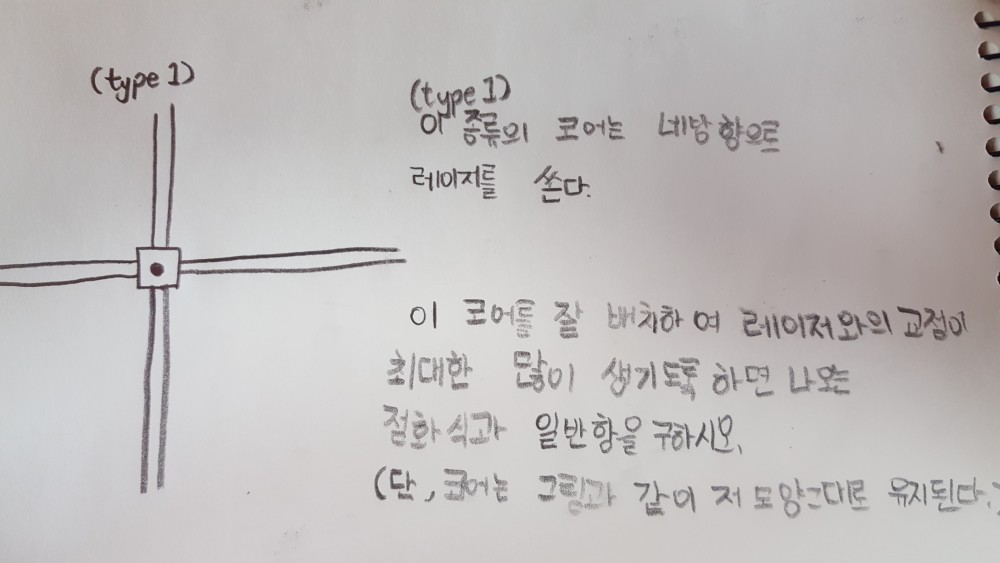 (type 1)
(type 1)
이 종류의 코어는 네방향으로
레이저를 쏜다.
이 코어를 잘 배치하여 레이저와의 교점이
최대한 많이 생기도록 하면 나오는
점화식과 일반항을 구하시오.
(단, 코어는 그림과 같이 저 모양그대로 유지된다.)